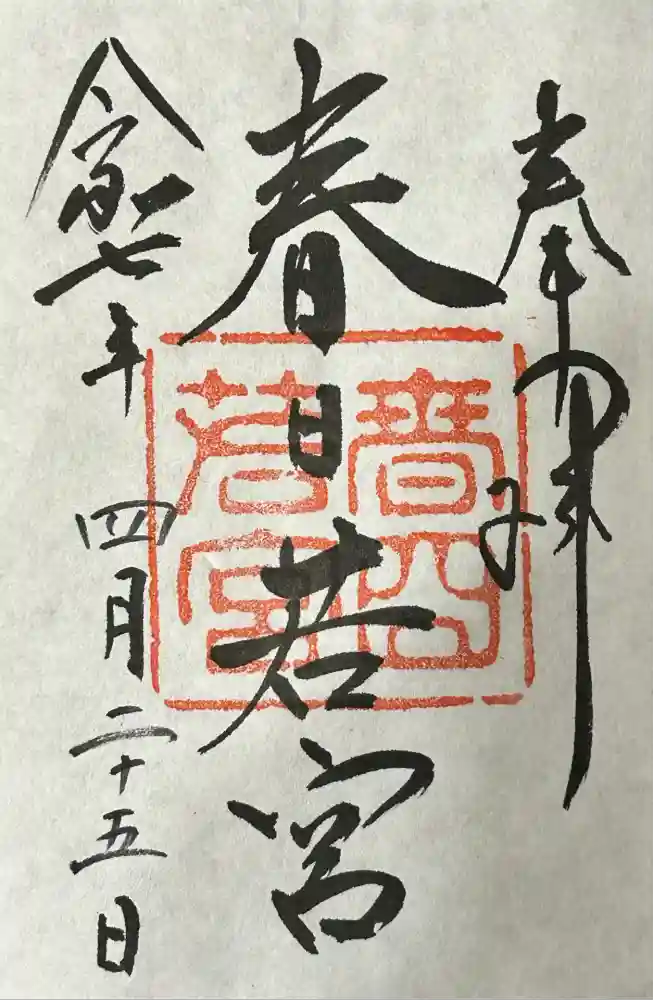 奉拝
春日若宮
令和七年 四月二十五日